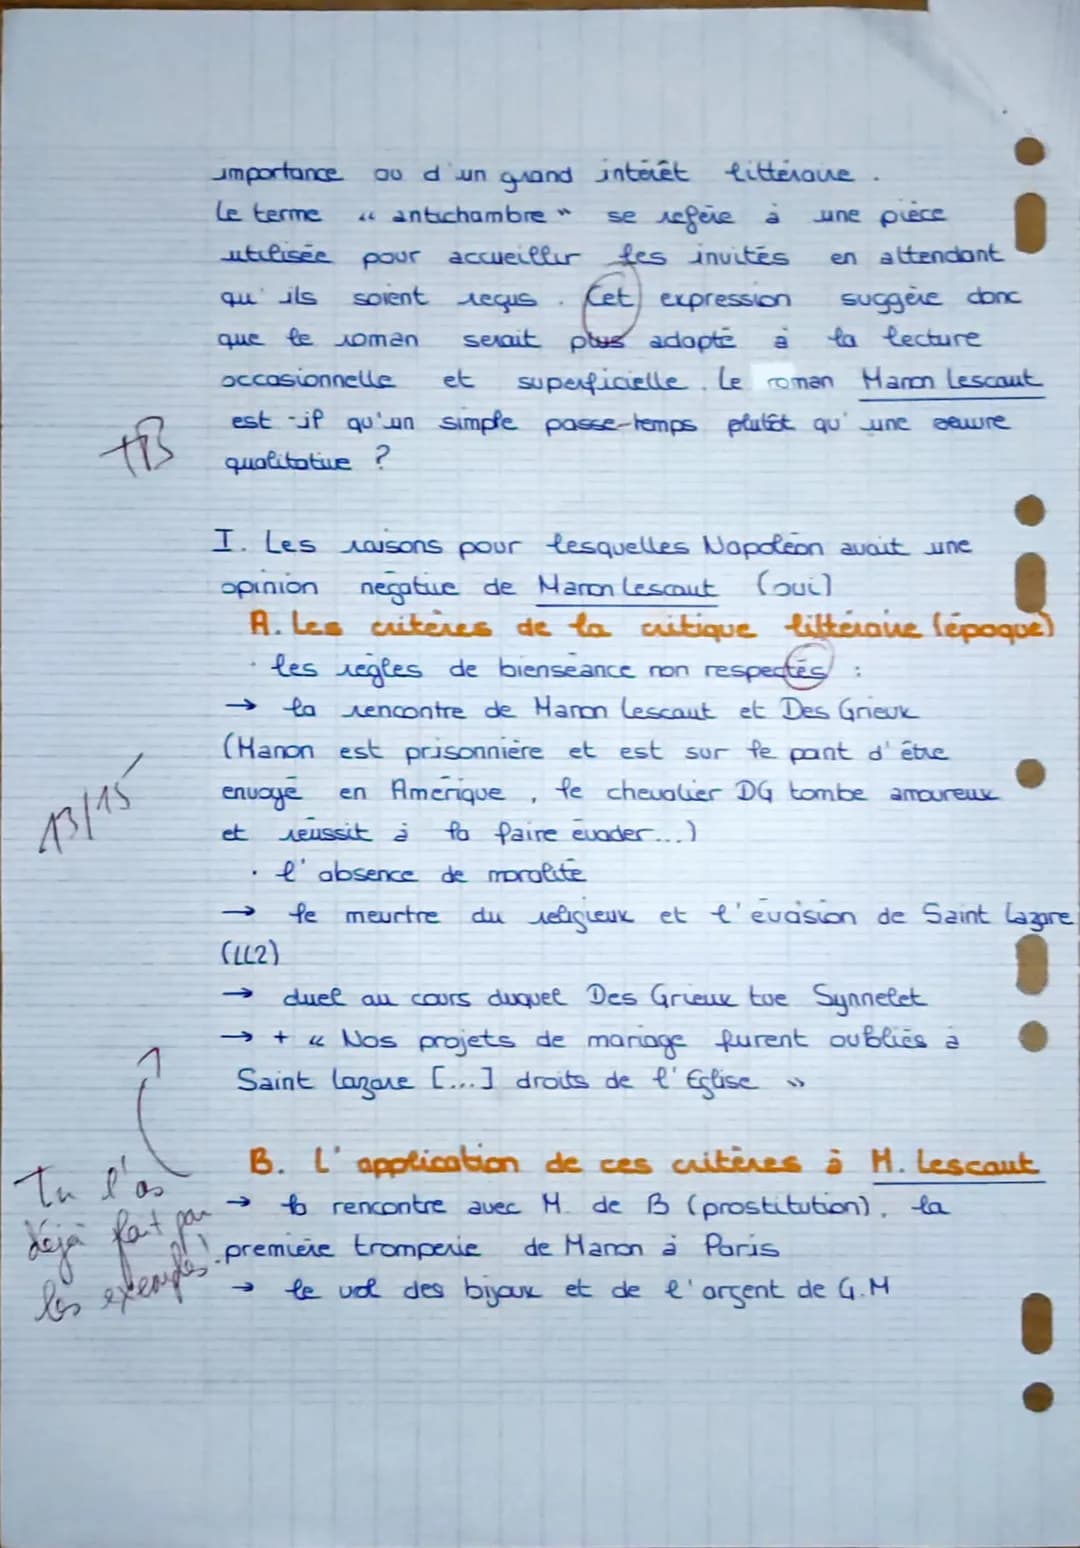 importance ou d'un grand intérêt littéraire.
Le terme "antichambre" se refère à une pièce
utilisée pour accueillir les invités en attendant
qu'ils soient reçus. Cet expression suggère donc
que le roman serait plus adapté à la lecture
occasionnelle et superficielle. Le roman Manon Lescaut
est-il qu'un simple passe-temps plutôt qu'une oeuvre
TB
qualitative ?
I. Les raisons pour lesquelles Napoléon avait une
opinion negative de Manon Lescaut (oui)
A. Les critères de la critique littéraire (époque)
· les règles de bienséance non respectés :
→ la rencontre de Manon Lescaut et Des Grieux
(Manon est prisonnière et est sur le pont d'être
envoyé en Amérique, le chevalier DG tombe amoureux
13/15
et réussit à la faire évader...)
· l'absence de moralité
→ le meurtre du religieux et l'évasion de Saint Lazare
(LL2)
→ duel au cours duquel Des Grieux tue Synnelet
→ + « Nos projets de mariage furent oubliés à
Saint Lazare [...] droits de l'Eglise »
B. L'application de ces critères à M. Lescaut
Tu l'as
déjà fait par
les exemples!
→ la rencontre avec M. de B (prostitution), la
première tromperie de Manon à Paris
→ le vol des bijoux et de l'argent de G.M